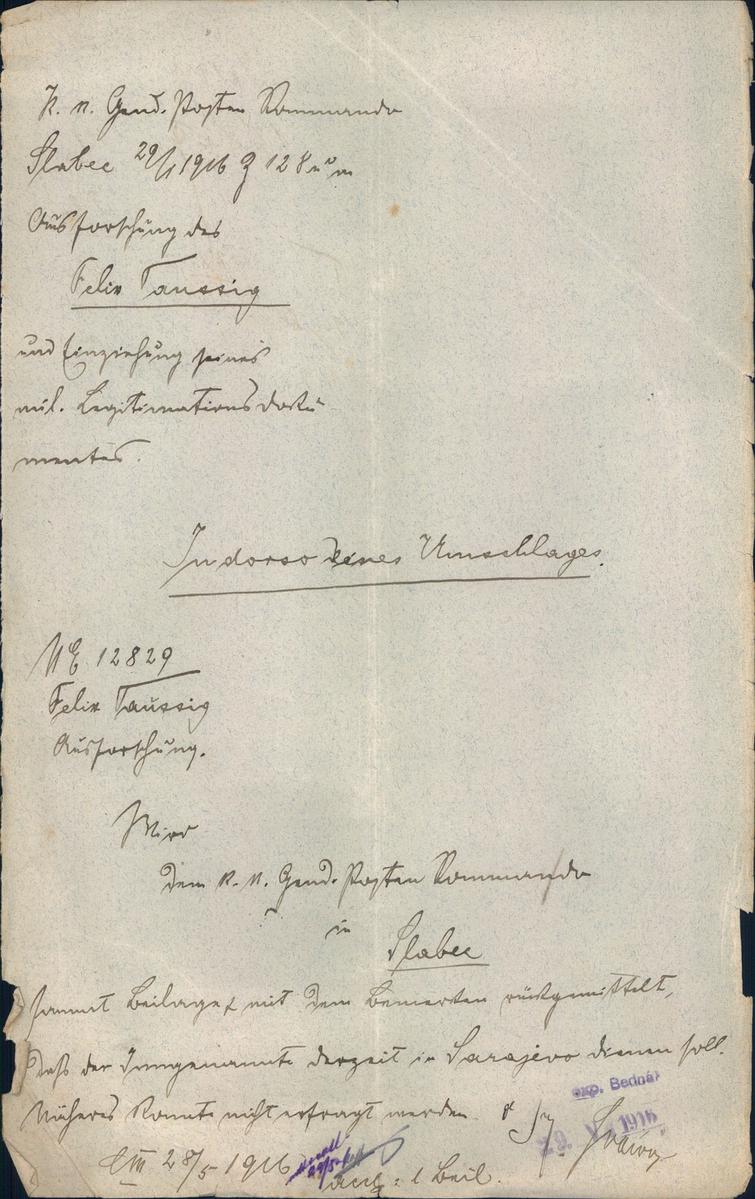 K. k. Gend. Posten Kommando
Slabec 29/1 1916 Z 128
Ausforschung des
Felix Taussig
und Einziehung seines
mil. Legitimationsdoku
mentes.
Indorso eines Umschlages.
ME 12829
Felix Taussig
Ausforschung.
Wird
dem k. k. Gend. Posten Kommando
in
Slabec
sammt Beilage mit dem Bemerken rückgemittelt,
daß der Innengenannte derzeit in Sarajevo dienen soll.
Näheres konnte nicht erfragt werden.
exp. Bednář
29. 1916
28/5 1916
1 Beil.